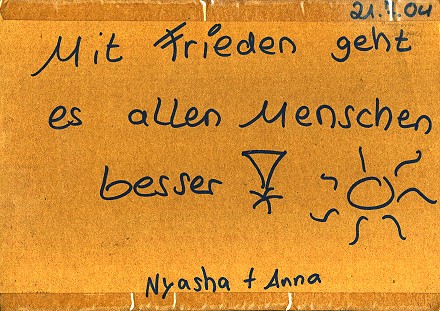 21.1.04
Mit Frieden geht
es allen Menschen
besser!
Nyasha + Anna